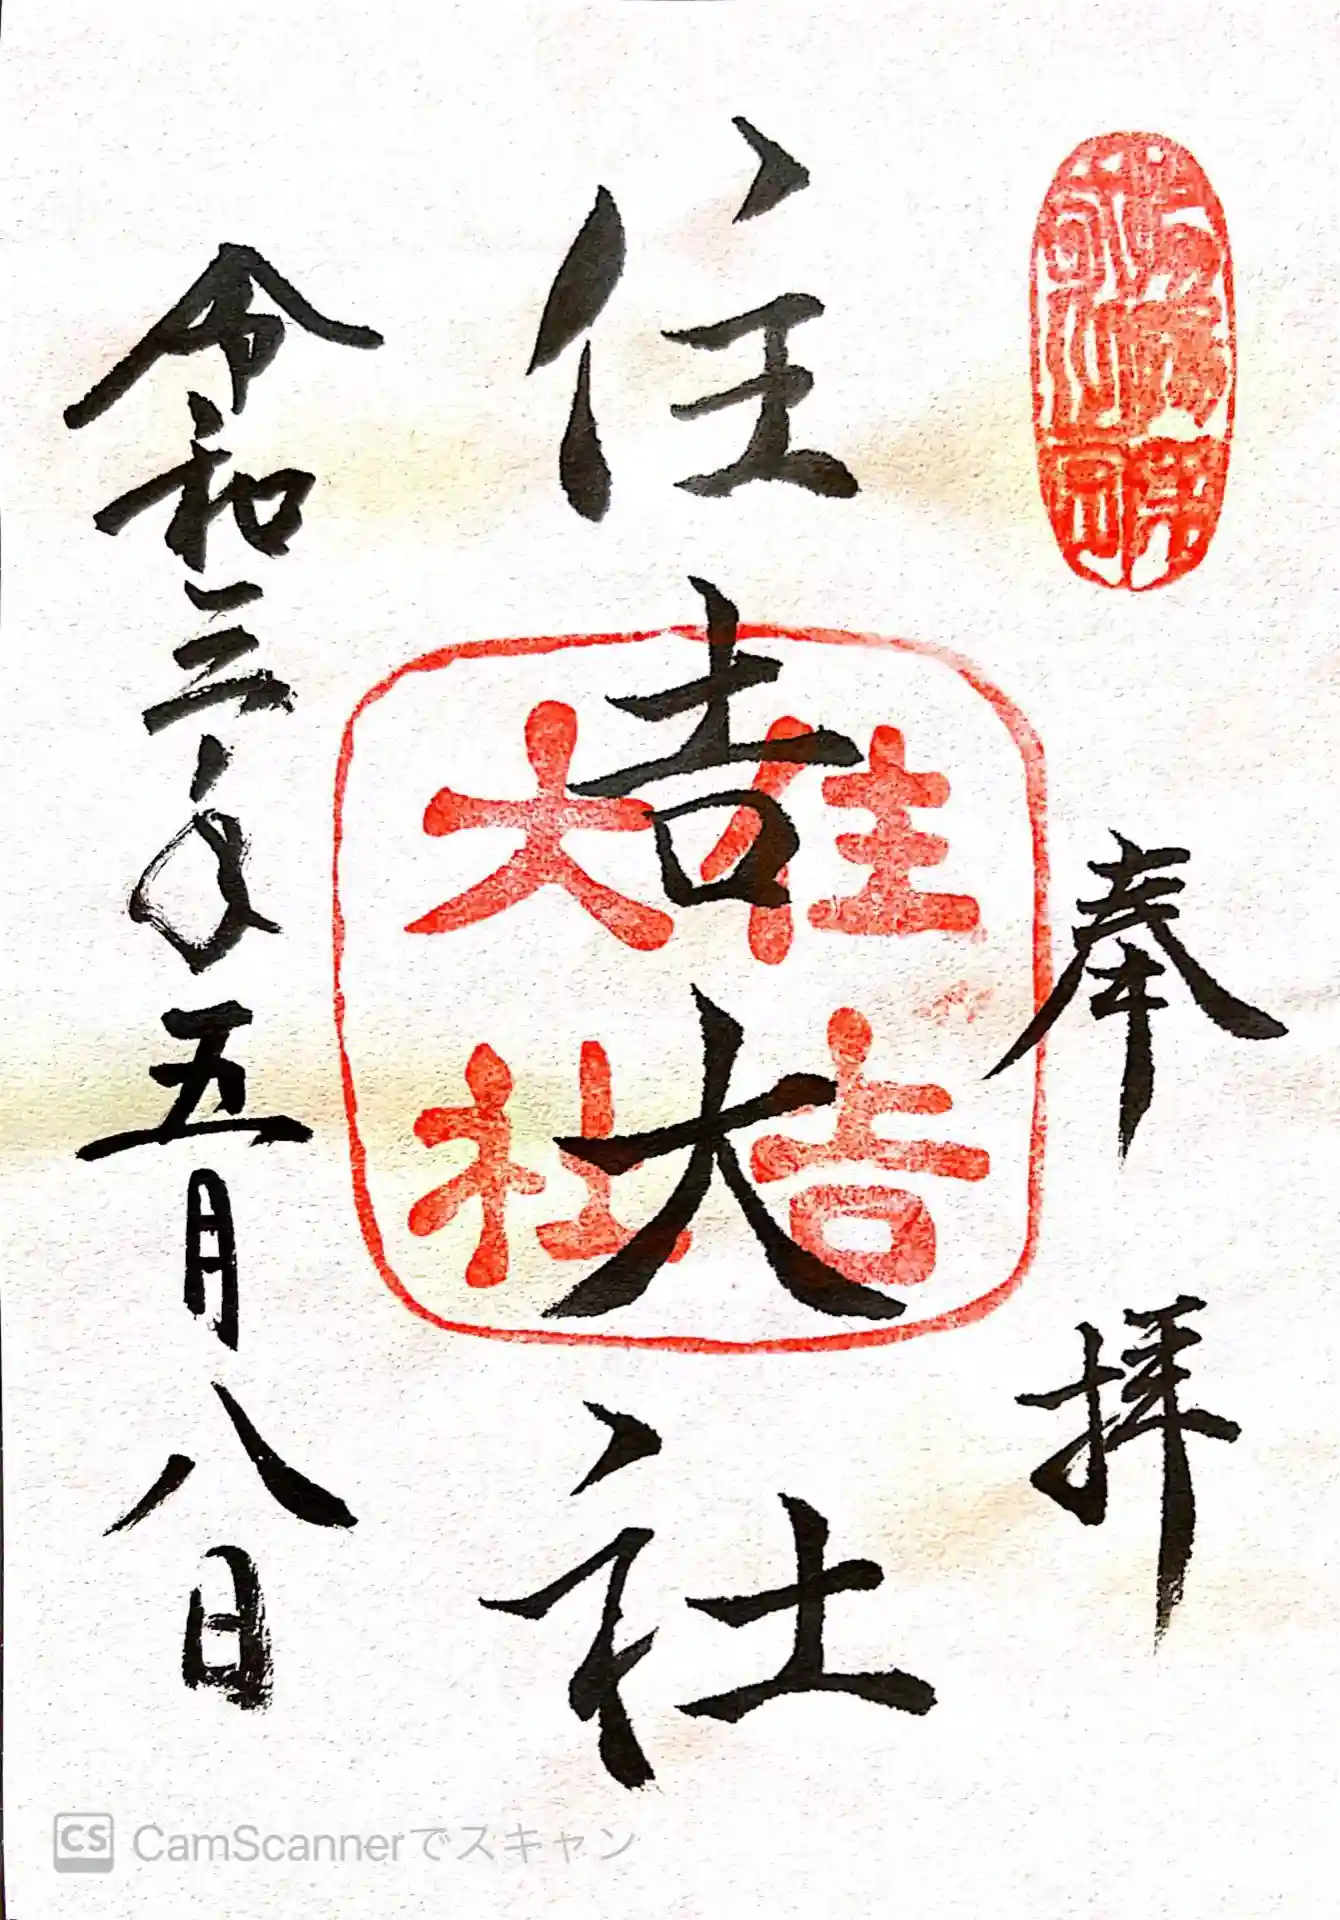 奉拝
住吉大社
住吉大社
令和三年五月八日
CS CamScannerでスキャン